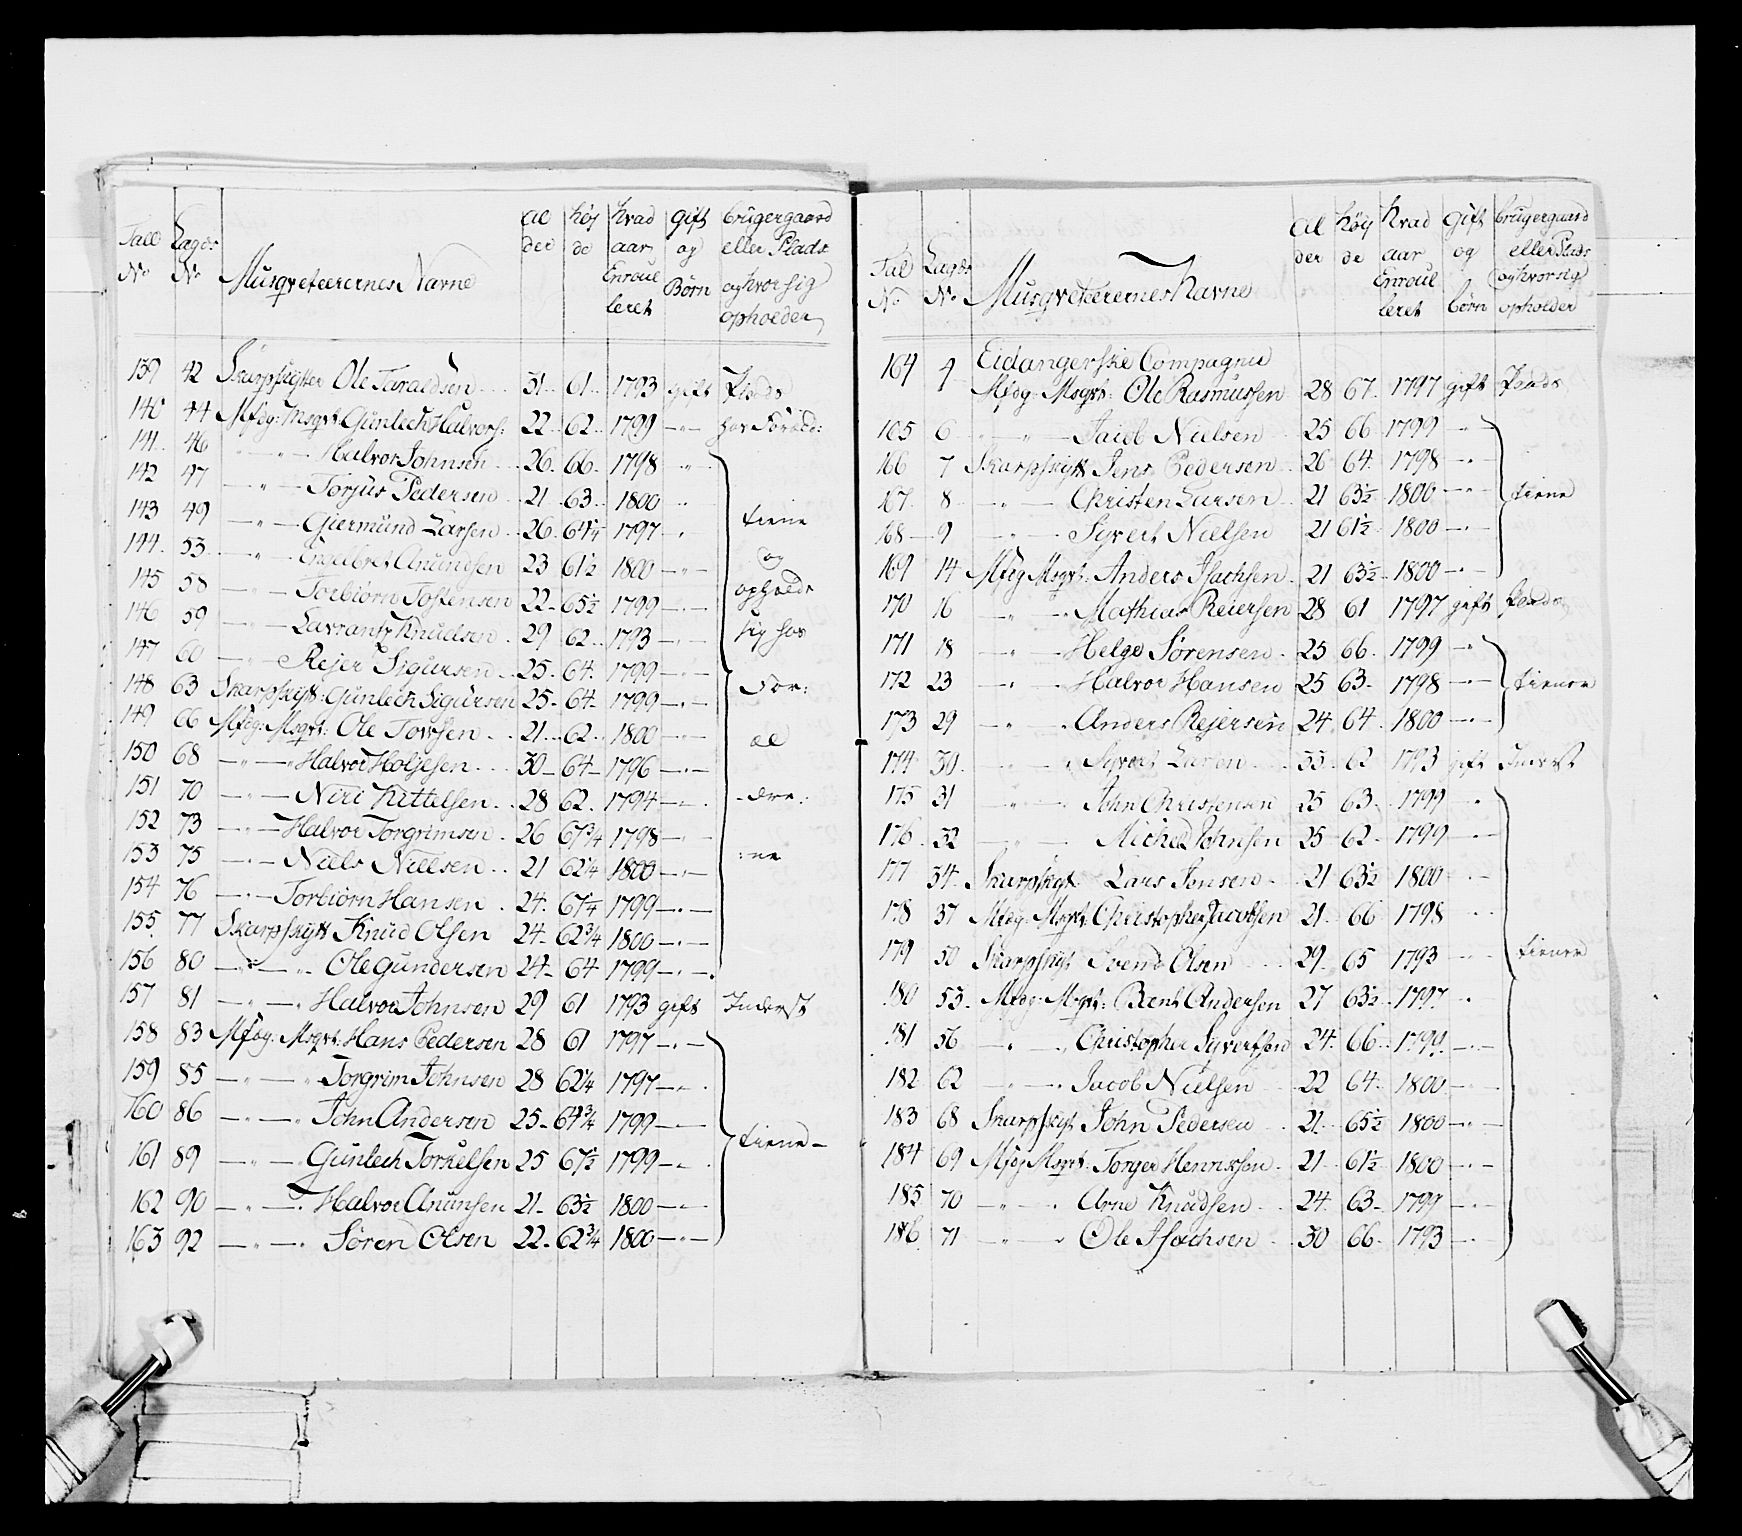 Tall No Lagds No Musqveteerernes Navne Al der høy de hvad aar Enroul leret Gift og Børn brugergaard eller Plads og hvor sig opholder
139 42 Skarpskytter Ole Taraldsen 31 61 1793 gift Plads
140 44 Mfdg: Msqvt: Gunlech Halvors: 22 62 1799 — " — hos Foræld:
141 46 " — " — Halvor Johnsen 26 66 1798 "
142 47 — " — Torjus Pedersen 21 63 1800 "
143 49 — " — Giermund Larsen 26 64¼ 1797 " tiene
144 53 — " — Engelbret Anundsen 23 61½ 1800 — " — og
145 58 — " — Torbiørn Tostensen 22 65½ 1799 — " — opholde
146 59 — " — Lavrants Knudsen 29 62 1793 — " — sig hos
147 60 — " — Rejer Sigursen 25 64 1799 — " —
148 63 Skarpskytt: Gunlech Sigursen 25 64 1799 — " — For:
149 66 Mfdg: Msqvt: Ole Torsen 21 62 1800 — " —
150 68 — " — Halvor Holjesen 30 64 1796 — " — æl
151 70 — " — Niri Kittelsen 28 62 1794 — " — dre:
152 73 — " — Halvor Torgrimsen 26 67¾ 1798 — " —
153 75 — " — Niels Nielsen 21 62¼ 1800 — " — :ne
154 76 — " — Torbiørn Hansen 24 67¼ 1799 — " —
155 77 Skarpskytt Knud Olsen 24 62¾ 1800 — " —
156 80 — " — " Ole Gundersen 24 64 1799 — " —
157 81 — " — " Halvor Johnsen 29 61 1793 gift Inderst
158 83 Mfdg: Msqvt: Hans Pedersen 28 61 1797 — " —
159 85 — " — " Torgrim Johnsen 28 62¼ 1797 — " —
160 86 — " — " John Andersen 25 64¾ 1799 — " —
161 89 — " — " Gunlech Torkelsen 25 67½ 1799 — " — tiene
162 90 — " — " Halvor Anunsen 21 63½ 1800 — " —
163 92 — " — " Søren Olsen 22 62¾ 1800 — " —
Tal No Lagds No Musqveteerernes Navne Al der høy de hvad aar Enroul leret Gift og børn brugergaard eller Plads og hvor sig opholder
Eidangerske Compagnie
164 4 Mfdg: Msqvt: Ole Rasmussen 28 67 1797 gift Plads
165 6 " — " — Jacob Nielsen 25 66 1799 — " —
166 7 Skarpskytt Jens Pedersen 26 64 1798 — " —
167 8 — " — Christen Larsen 21 63½ 1800 — " — tiene
168 9 — " — Syvert Nielsen 21 61½ 1800 — " —
169 14 Mfdg Msqvt: Anders Isachsen 21 63½ 1800 — " —
170 16 — " — Mathias Reiersen 28 61 1797 gift Plads
171 18 — " — Helge Sørensen 25 66 1799 — "
172 23 — " — Halvor Hansen 25 63 1798 — " — tiener
173 29 — " — Anders Rejersen 24 64 1800 — " —
174 30 — " — Syvert Larsen 33 62 1793 gift Inderst
175 31 — " — John Christensen 25 63 1799 — "
176 32 — " — Michel Johnsen 25 62 1799 — " —
177 34 Skarpskyt Lars Jensen 21 63½ 1800 — " —
178 37 Mfdg: Msqvt: Christopher Jacobsen 21 66 1798 — " —
179 50 Skarpskyt Svend Olsen 29 65 1793 — " — tiener
180 53 Mfdg: Msqvt: Bent Andersen 27 63½ 1797 "
181 56 — " — Christopher Syvertsen 24 66 1799 — " —
182 62 — " — Jacob Nielsen 22 64 1800 — " —
183 68 Skarpskyt John Pedersen 21 65½ 1800 — " —
184 69 Mfdg Msqvt: Torger Henrichsen 21 61½ 1800 — " —
185 70 — " — Arne Knudsen 24 63 1799 — " —
186 71 — " — Ole Isachsen 30 66 1793 — " —